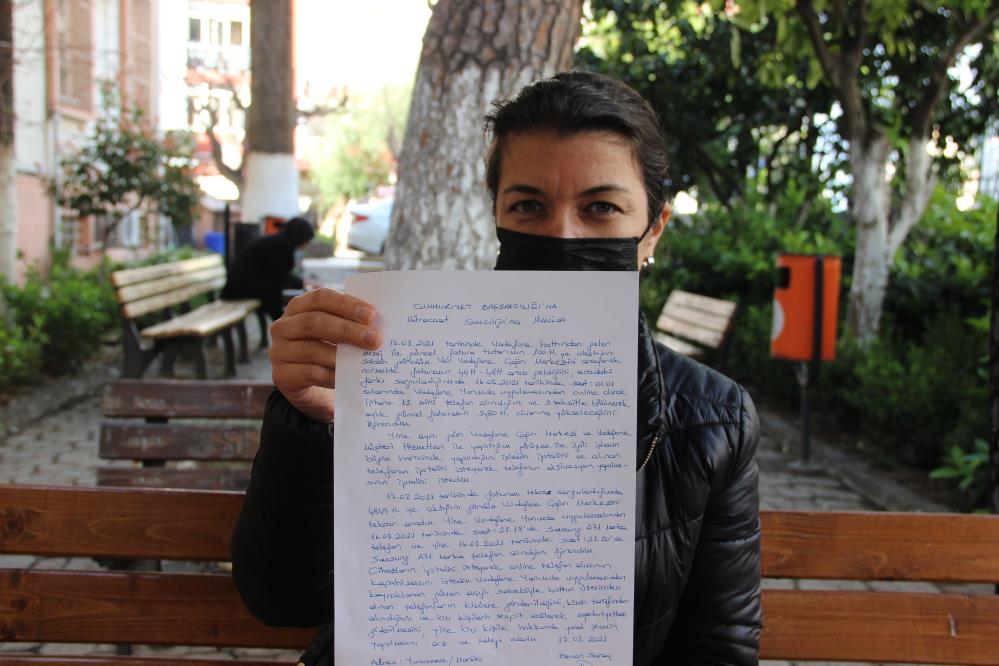 CUMHURİYET BAŞSAVCILIĞI'NA
Müracaat Savcılığı'na MANİSA
16.03.2021 tarihinde Vodafone hattımdan gelen
mesaj ile güncel fatura tutarımın 700 tl ye ulaştığını
sabah gördüm. Ve Vodafone Çağrı Merkezini arayarak
normalde faturamın 44tl-48tl arası geldiğini, aradaki
farkı sorguladığımda 16.03.2021 tarihinde saat: 01.01
sularında Vodafone Yanımda uygulamasından online olarak
İphone 12 mini telefon alındığını ve 3 taksitle bölünerek
aylık güncel faturamın 3480 tl civarına yükseleceğini
öğrendim.
Yine aynı gün Vodafone Çağrı Merkezi ve Vodafone
Müşteri Hizmetleri ile yaptığım görüşme ile ilgili işlemin
bilgim haricinde yapıldığını işlemin iptalini ve alınan
telefonun iptalini isteyerek telefonun aktivasyon yapılma-
sının iptalini istedim.
17.03.2021 tarihinde faturamı tekrar sorguladığımda
4845 tl ye çıktığını gördüm Vodafone Çağrı Merkezini
tekrar aradım. Yine Vodafone Yanımda uygulamasından
16.03.2021 tarihinde saat: 23.18'de Samsung A71 marka
telefon ve yine 16.03.2021 tarihinde saat: 23.20'de
Samsung A71 marka telefon alındığını öğrendim.
Cihazların iptalini isteyerek online telefon alımının
kapatılmasını istedim. Vodafone Yanımda uygulamasından
kaynaklanan güven açığı sebebiyle hattım üzerinden
alınan telefonların kimlere gönderildiğini, kimin tarafından
alındığını ve bu kişilerin tespit edilerek
giderilmesini, yine bu kişiler hakkında yasal işlemin
yapılmasını arz ve talep ederim. 17.03.2021
Adres: Yunusemre/Manisa